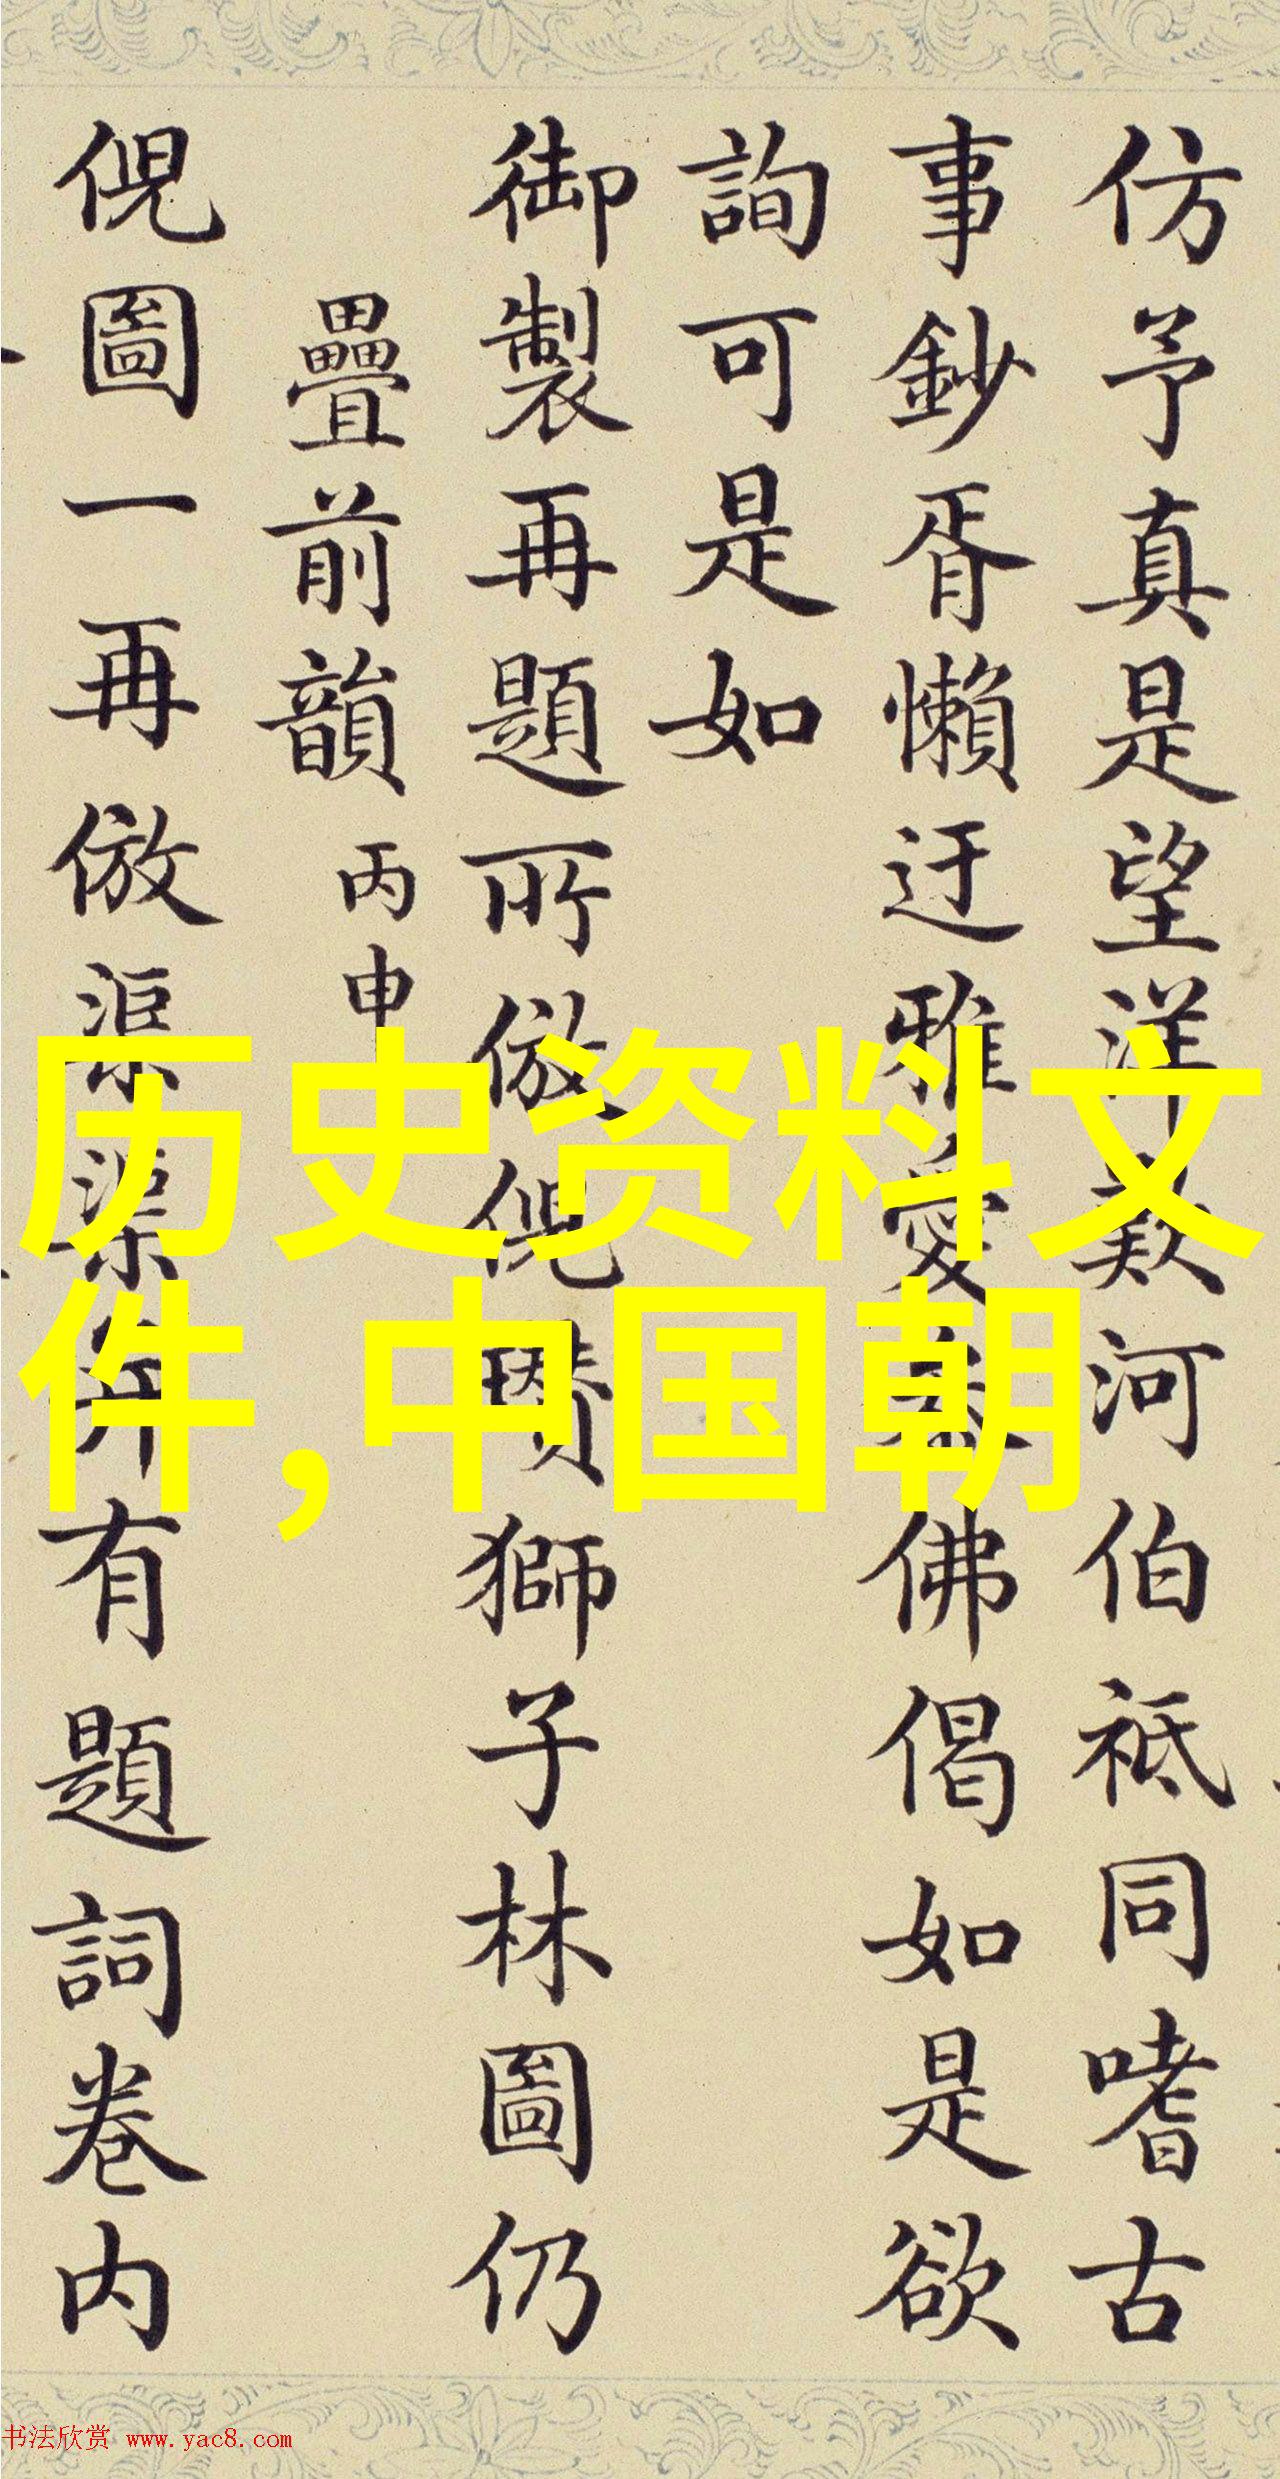 仿予真是望洋歎河伯祗同嗜古
事鈔胥懶迂雅愛泰佛偈如是欲
詢可是如
御製再題所倣倪瓚獅子林圖仍
疊前韻 丙申
倪圖一再倣渠渠弆有題詞卷內
历史资料文
件,中国朝
书法欣赏 www.yac8.com